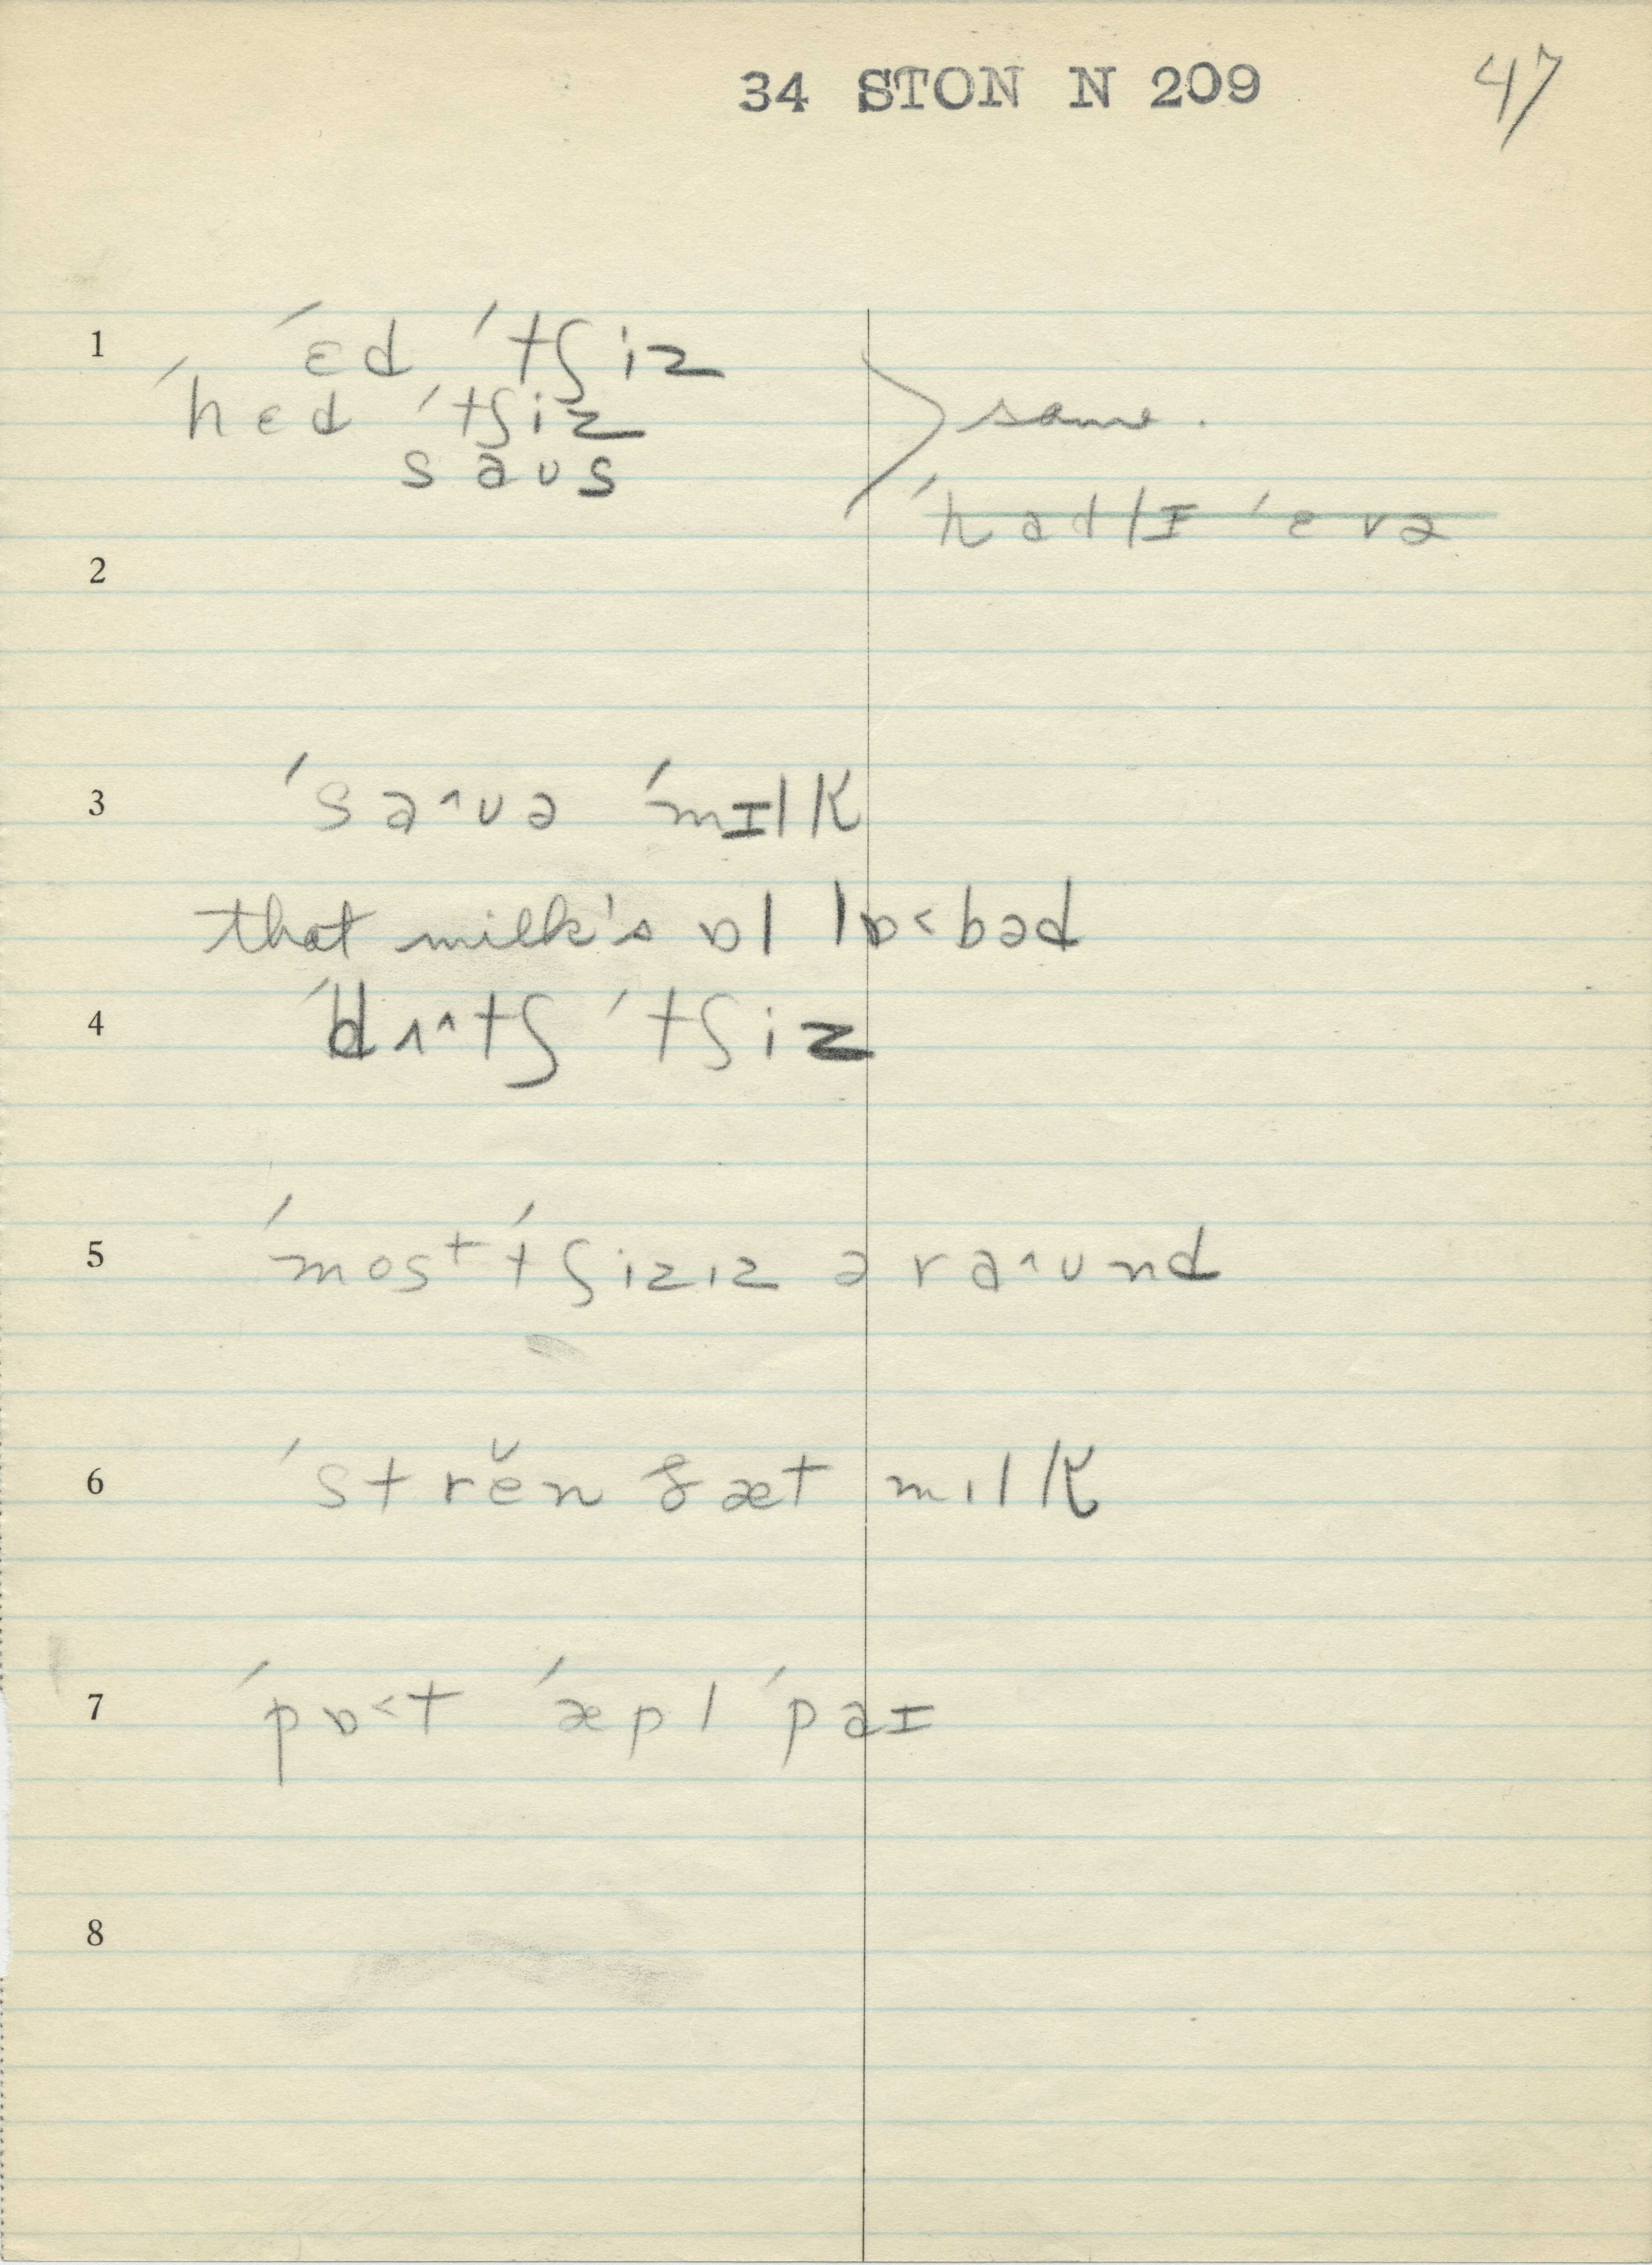 34 STON N 209 47
1 ˈɛd ˈtʃiz
ˈhɛd ˈtʃiz
saʊs
same.
ˈhadlɪ ˈevə
2
3 ˈsa^ʊə ˈmɪlk
that milk's ɒl lɒ<bəd
4 ˈdʌ^tʃ ˈtʃiz
5 ˈmost ˈtʃiziz əra^ʊnd
6 ˈstrĕn fæt milk
7 ˈpɒ<t ˈæpl ˈpaɪ
8